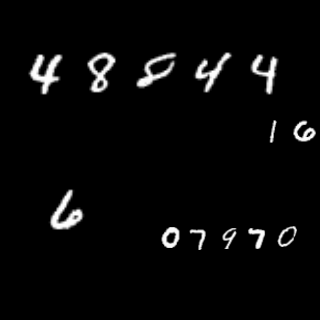 48844
16
6
07970